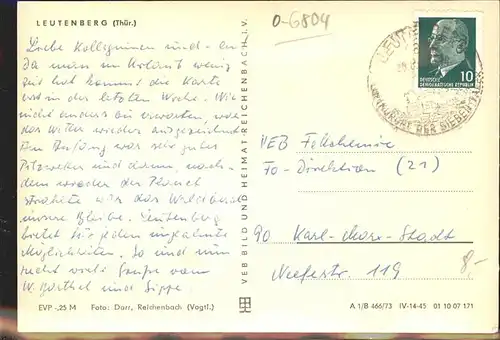 LEUTENBERG (Thür.)
0-6804
Liebe Kolleginnen und -en
Da man im Urlaub wenig
Zeit hat kommt die Karte
erst in der letzten Woche. Wie
nicht anders zu erwarten, war
das Wetter wieder ausgezeichnet
Am Anfang war sehr gutes
Pilzwetter und dann, nach-
dem wieder der Planet
strahlte war das Waldbad
unsere Bleibe. Leutenberg
bietet für jeden ungeahnte
Möglichkeiten. So und nun
recht viele Grüße von
W. Barthel und Sippe
EVP -,25 M Foto: Darr, Reichenbach (Vogtl.)
VEB BILD UND HEIMAT REICHENBACH i. V.
DEUTSCHE
DEMOKRATISCHE REPUBLIK 10
LUFTKURORT DER SIEBEN TÄLER
VEB
Fo-Direktion (21)
90 Karl-Marx-Stadt
Neefestr. 119
8,-
A 1/B 466/73 IV-14-45 01 10 07 171